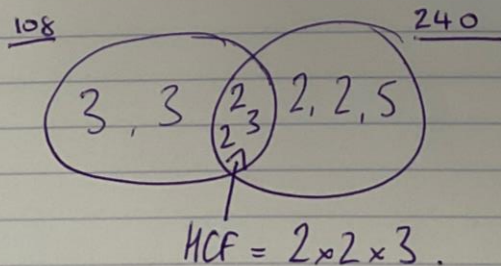 108 240
3, 3 2 2, 2, 5
2 3
HCF = 2×2×3.